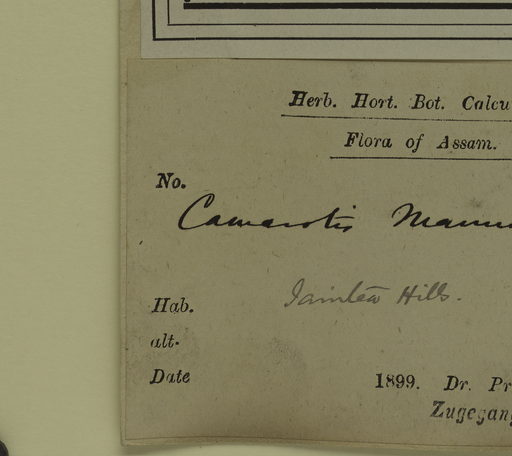 Herb. Hort. Bot. Calcu
Flora of Assam.
No.
Camarotis Mannii
Jaintea Hills.
Hab.
alt.
Date
1899. Dr. Pr
Zugegang